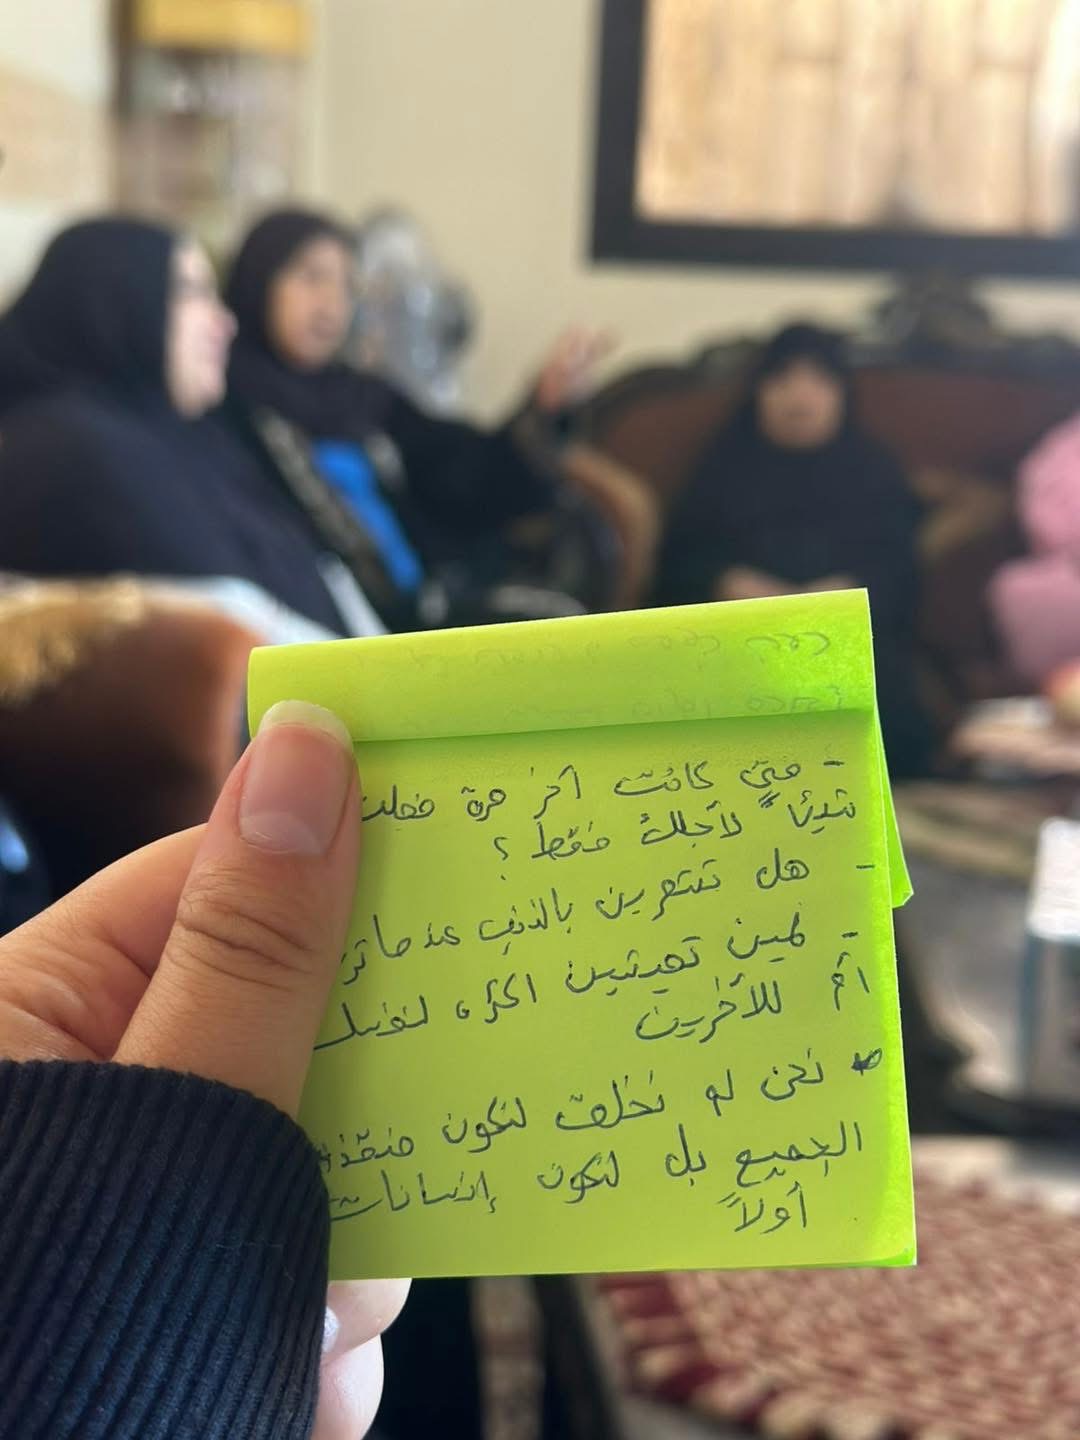 - متى كانت آخر مرة فعلت
شيئاً لأجلك فقط ؟
- هل تشعرين بالذنب عندما
- لمين تعيشين اكثر، لنفسك
أم للآخرين
نحن لم نخلق لنكون
الجميع بل لنكون إنسانات
أولاً